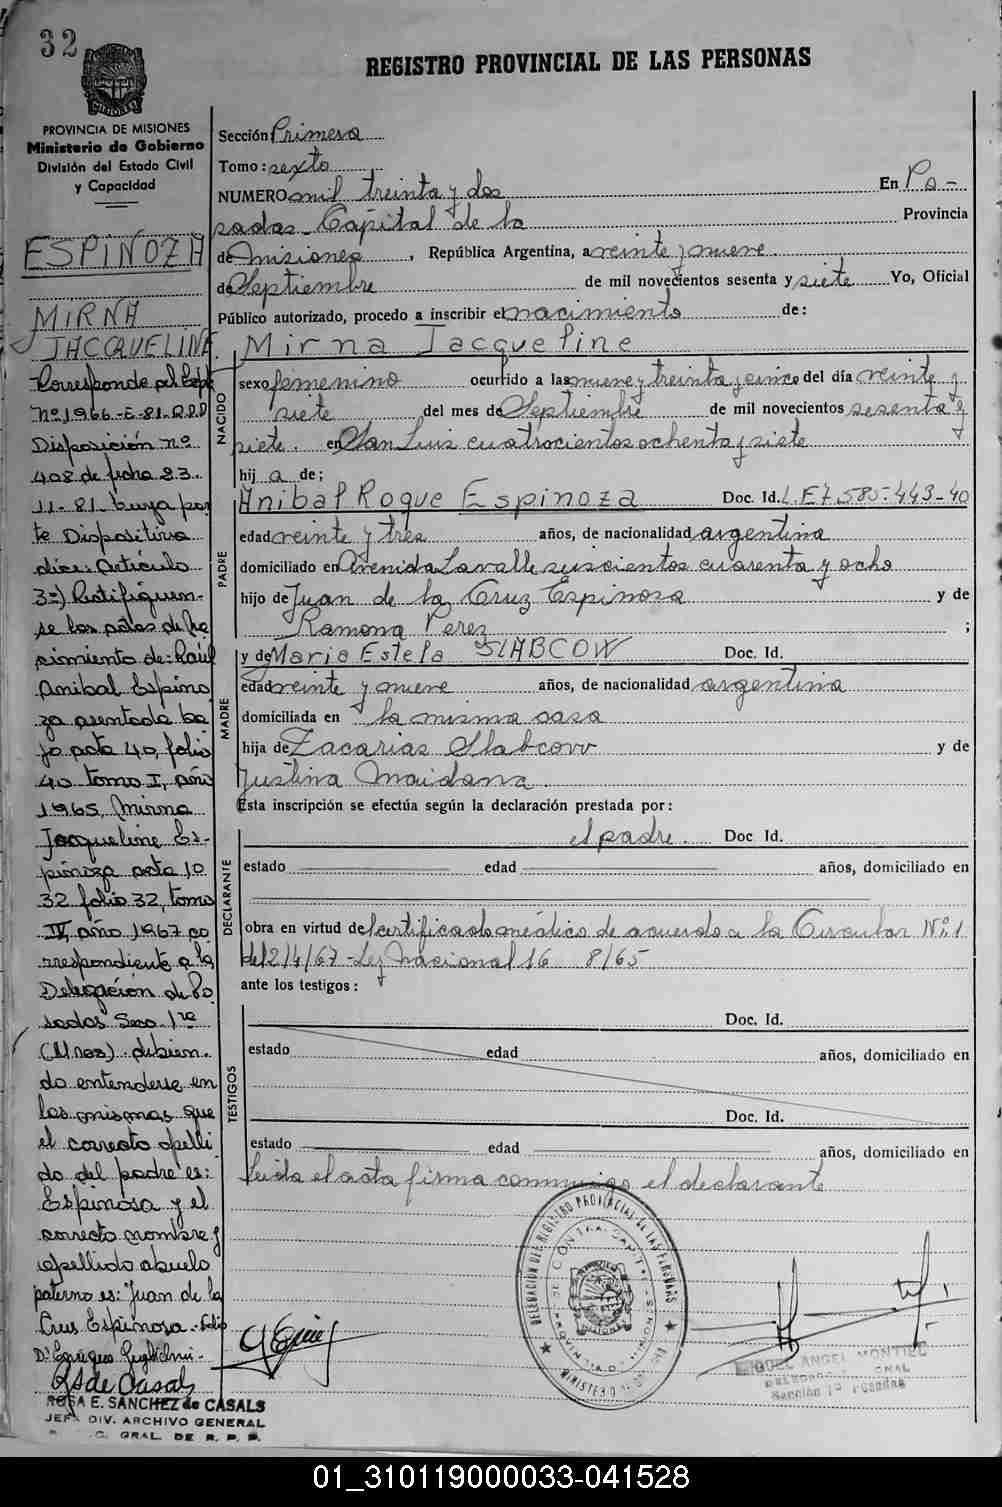 32
REGISTRO PROVINCIAL DE LAS PERSONAS
PROVINCIA DE MISIONES
Ministerio de Gobierno
División del Estado Civil
y Capacidad
ESPINOZA
MIRNA
JACQUELINE
Corresponde al Expte
Nº 1966-E-81-R.P.P
Disposición nº
408 de fecha 23.
11-81 cuya par
te Dispositiva
dice: Artículo
3º) Rectifíquen-
se las actas de Na
cimiento de: Raúl
Anibal Espino
za asentada ba
jo acta 40, folio
40 tomo I, año
1965, Mirna
Jacqueline Es-
pinoza acta 10
32 folio 32, tomo
año 1967 co
rrespondiente a la
Delegación de Po
sadas Secc. 1ra
(Mnes) debien-
do entenderse en
las mismas que
el correcto apelli
do del padre es:
Espinosa y el
correcto nombre y
apellido abuelo
paterno es: Juan de la
Cruz Espinosa.
ROSA E. SANCHEZ de CASALS
JEFA DIV. ARCHIVO GENERAL
GRAL. DE R. P. P.
Sección Primera
Tomo: sexto
NUMERO mil treinta y dos En Po-
sadas Capital de la Provincia
de Misiones, República Argentina, a veinte y nueve
de Septiembre de mil novecientos sesenta y siete Yo, Oficial
Público autorizado, procedo a inscribir el nacimiento de:
NACIDO
Mirna Jacqueline
sexo femenino ocurrido a las nueve y treinta y cinco del día veinte y
siete del mes de Septiembre de mil novecientos sesenta y
siete. en San Luis cuatrocientos ochenta y siete
hij a de;
PADRE
Anibal Roque Espinoza Doc. Id. L.E 7.585.443-40
edad veinte y tres años, de nacionalidad argentina
domiciliado en Avenida Lavalle seiscientos cuarenta y ocho
hijo de Juan de la Cruz Espinosa y de
Ramona Perez ;
MADRE
y de Maria Estela SLABCOW Doc. Id.
edad veinte y nueve años, de nacionalidad argentina
domiciliada en la misma casa
hija de Zacarias Slabcow y de
Justina Maidana.
Esta inscripción se efectúa según la declaración prestada por:
DECLARANTE
el padre. Doc Id.
estado edad años, domiciliado en
obra en virtud del certificado médico de acuerdo a la Circular Nº 1
del 2/4/67 - Ley Nacional 16 8/65
ante los testigos:
TESTIGOS
Doc. Id.
estado edad años, domiciliado en
Doc. Id.
estado edad años, domiciliado en
Leida el acta firma conmigo el declarante
DELEGACION DEL REGISTRO PROVINCIAL DE LAS PERSONAS
MISIONES
MIGUEL ANGEL MONTIEL
Sección 1a POSADAS
01_310119000033-041528